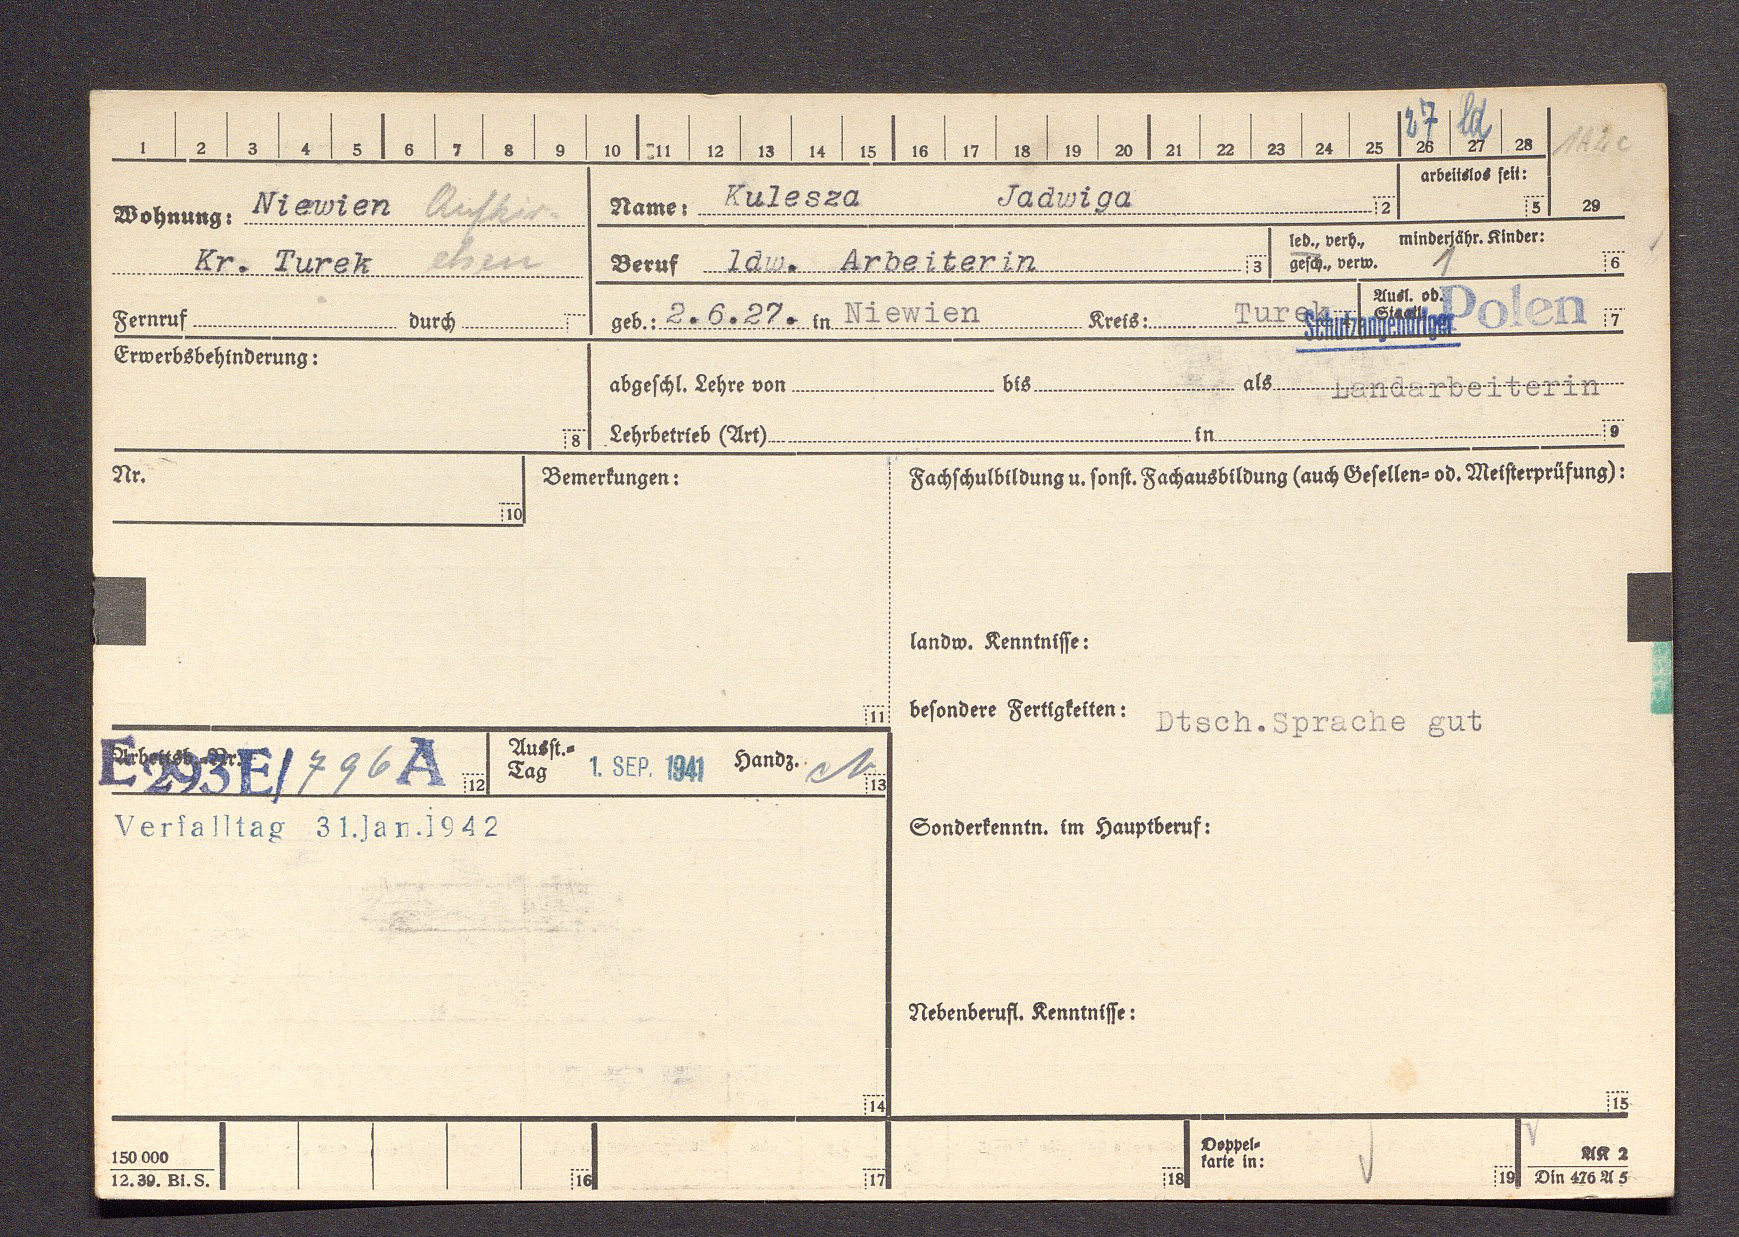 27 ld
1 2 3 4 5 6 7 8 9 10 11 12 13 14 15 16 17 18 19 20 21 22 23 24 25 26 27 28
Wohnung: Niewien Aufkir-
Name: Kulesza Jadwiga 2
arbeitslos seit: 5 29
Kr. Turek chen
Beruf ldw. Arbeiterin 3
led., verh., gesch., verw. minderjähr. Kinder: 1 6
Fernruf durch
geb.: 2.6.27. in Niewien Kreis: Turek
Ausl. od. Staatl. Polen 7
Schutzangehöriger
Erwerbsbehinderung: 8
abgeschl. Lehre von bis als Landarbeiterin
Lehrbetrieb (Art) in 9
Nr. 10
Bemerkungen: 11
Fachschulbildung u. sonst. Fachausbildung (auch Gesellen- od. Meisterprüfung):
landw. Kenntnisse:
besondere Fertigkeiten: Dtsch.Sprache gut
Arbeitsb.-Nr. E 293E/796 A 12
Ausst.-Tag 1. SEP. 1941 Handz. 13
Verfalltag 31.Jan.1942
Sonderkenntn. im Hauptberuf:
Nebenberufl. Kenntnisse:
14
15
150 000
12.39. Bi.S.
16 17 18
Doppel-
karte in: 19
AK 2
Din 476 A 5